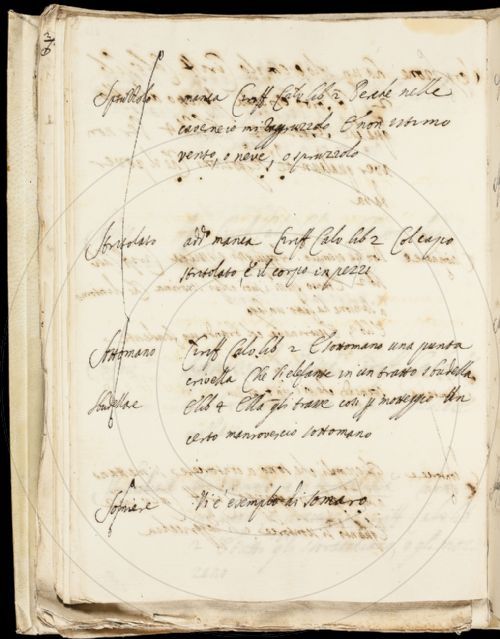 36
Spruzzolo manca Ciriff. Calv. lib 2 Perche nelle
caverne io mi rappruzzolo E non estimo
vento, o neve, o spruzzolo
Stritolato add. manca Ciriff Calv lib 2 Col capo
stritolato, e il corpo in pezzi
Sottomano Ciriff Calv. lib 2 E sottomano una punta
crivella Che l'elefante in un tratto sbudella
sbudellare E lib 4 Ella gli trasse così p motteggio Un
certo manrovescio sottomano
Somiere Vi è esemplo di somaro